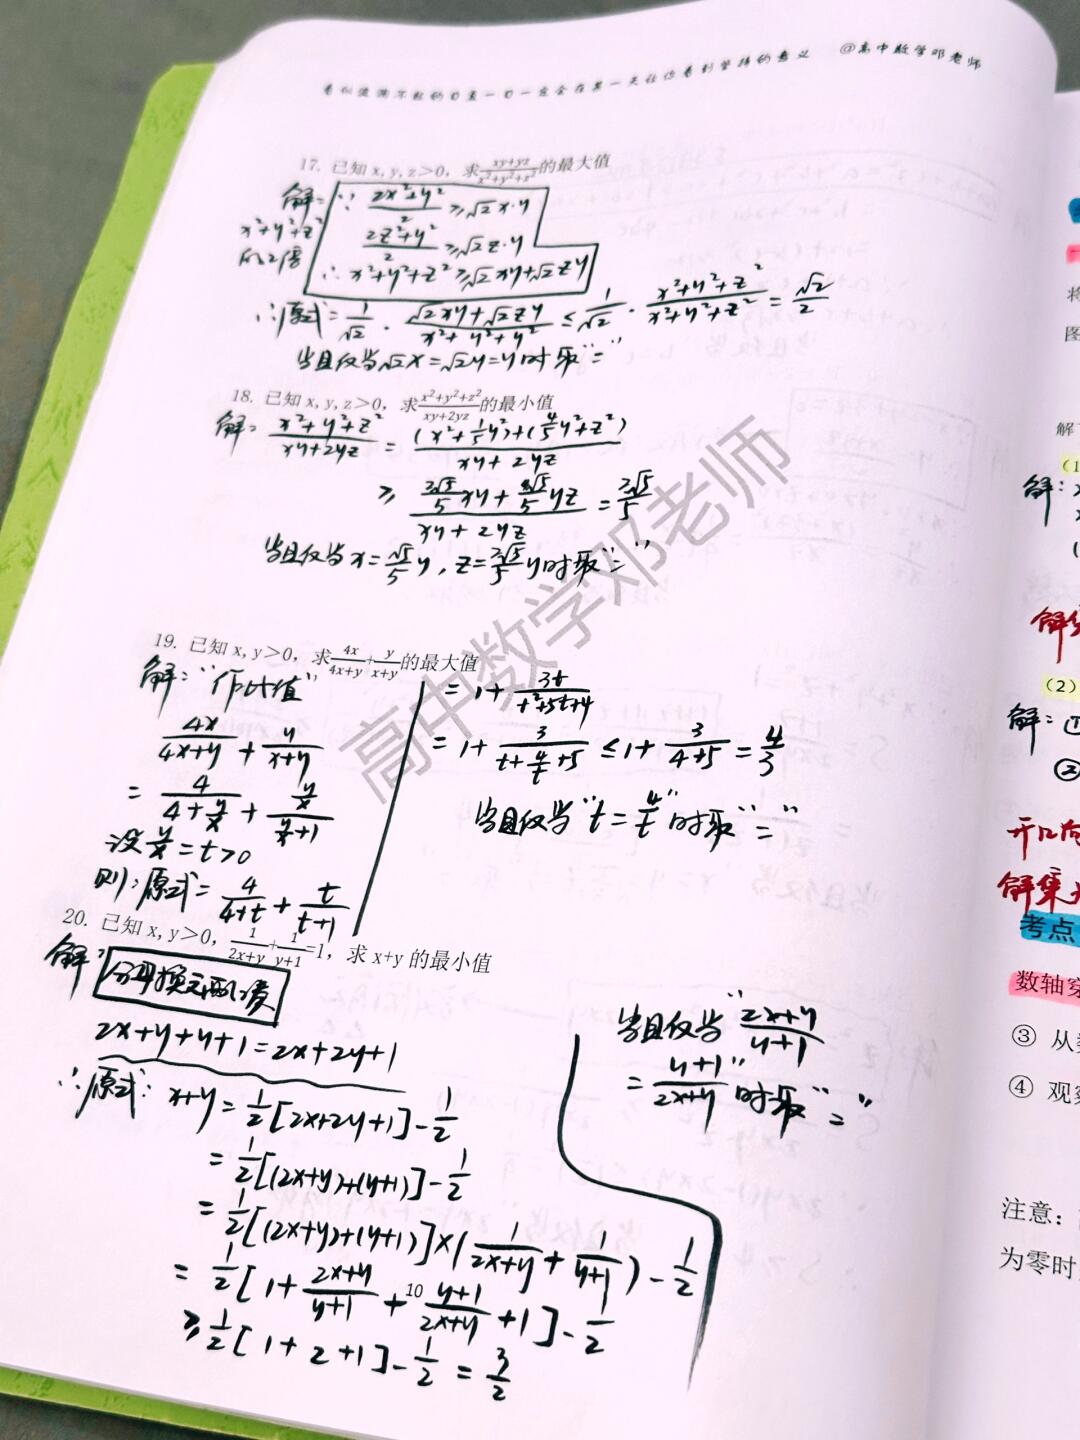 看似波澜不惊的日复一日一定会在某一天让你看到坚持的意义 @高中数学邓老师
17. 已知 x, y, z>0, 求(xy+yz)/(x²+y²+z²)的最大值
解: ∵ (2x²+y²)/2 ≥ √2x·y
x²+y²+z²
的2倍 (2z²+y²)/2 ≥ √2z·y
∴ x²+y²+z² ≥ √2xy+√2zy
∴原式=1/√2 · (√2xy+√2zy)/(x²+y²+y²) ≤ 1/√2 · (x²+y²+z²)/(x²+y²+z²) = √2/2
当且仅当√2x=√2y=y时取"="
18. 已知 x, y, z>0, 求(x²+y²+z²)/(xy+2yz)的最小值
解: (x²+y²+z²)/(xy+2yz) = ((x²+1/5y²)+(4/5y²+z²))/(xy+2yz)
≥ (2√5/5 xy + 4√5/5 yz)/(xy+2yz) = 2√5/5
当且仅当x=√5/5 y, z=2√5/5 y时取"="
19. 已知 x, y>0, 求4x/(4x+y)+y/(x+y)的最大值
解: "作比值"
4x/(4x+y) + y/(x+y)
= 4/(4+y/x) + (y/x)/(y/x+1)
设y/x=t>0
则: 原式=4/(4+t) + t/(t+1)
= 1+3t/(t²+5t+4)
= 1+3/(t+4/t+5) ≤ 1+3/(4+5) = 4/3
当且仅当"t=4/t"时取"="
20. 已知 x, y>0, 1/(2x+y)+1/(y+1)=1, 求 x+y 的最小值
解: 分母换元配凑
2x+y+y+1=2x+2y+1
∴原式: x+y=1/2[2x+2y+1]-1/2
=1/2[(2x+y)+(y+1)]-1/2
=1/2[(2x+y)+(y+1)]×(1/(2x+y)+1/(y+1))-1/2
=1/2[1+(2x+y)/(y+1)+(y+1)/(2x+y)+1]-1/2
≥1/2[1+2+1]-1/2=3/2
当且仅当"(2x+y)/(y+1)
=(y+1)/(2x+y)"时取"="
10
高中数学邓老师
将
图
解
(1)
解:
(2)
解: ①
②
解集
考点
数轴穿
③ 从
④ 观察
注意:
为零时